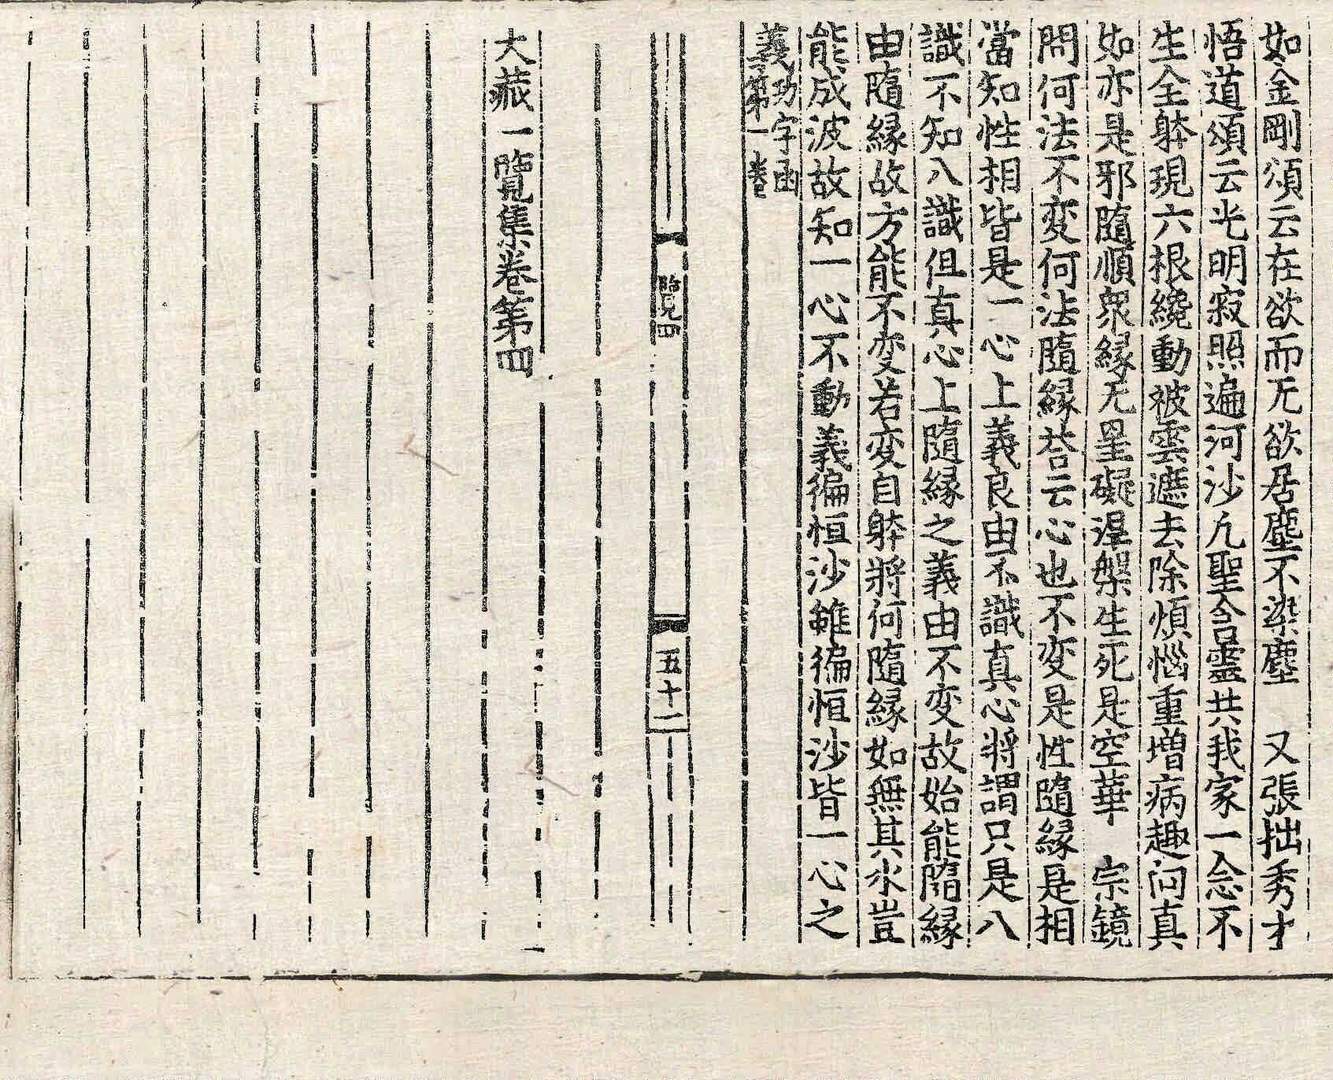 如金剛頌云在欲而无欲居塵不染塵　又張拙秀才
悟道頌云光明寂照遍河沙凡聖含靈共我家一念不
生全躰現六根纔動被雲遮去除煩惱重增病趣问真
如亦是邪隨順衆縁无罣礙涅槃生死是空華　宗鏡
問何法不变何法隨縁荅云心也不变是性隨縁是相
當知性相皆是一心上義良由不識真心將謂只是八
識不知八識但真心上隨縁之義由不变故始能隨縁
由隨縁故方能不变若变自躰將何隨縁如無其水豈
能成波故知一心不動義徧恒沙雖徧恒沙皆一心之
義功字函
第一卷
覽四
五十二
大藏一覽集卷第四